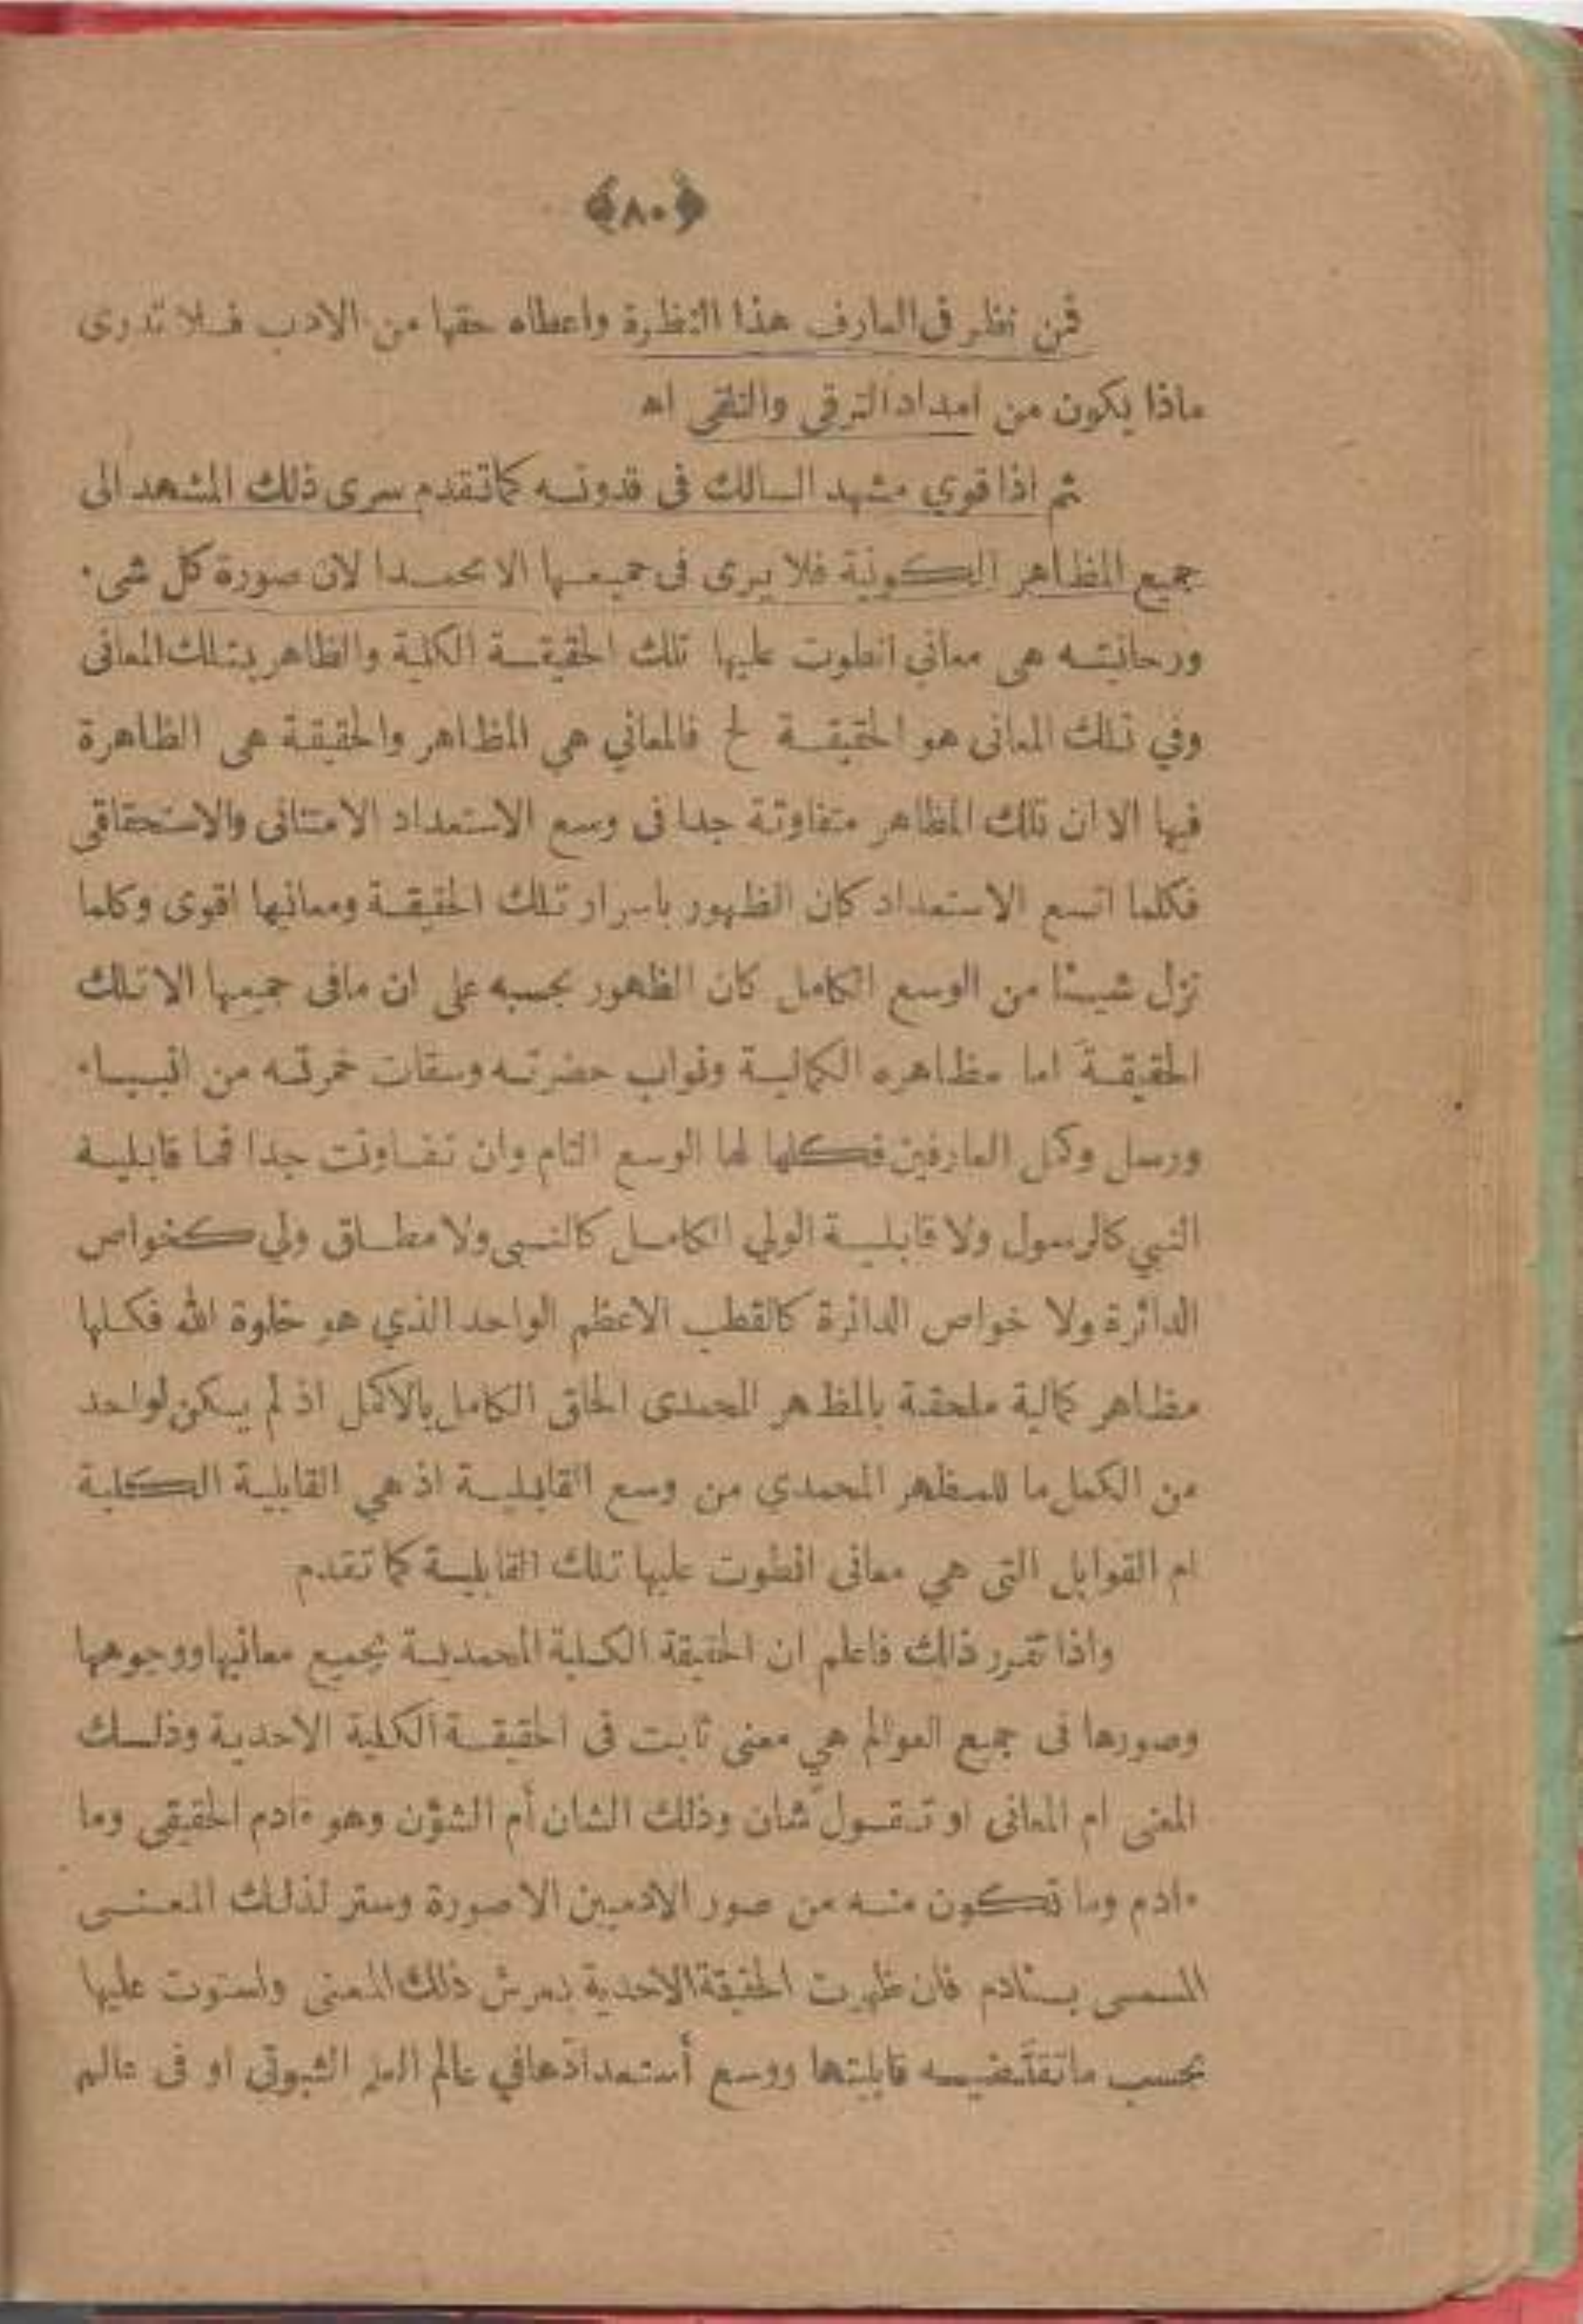 ﴿٨٠﴾
فمن نظر في العارف هذا النظرة واعطاه حقها من الادب فلا تدرى
ماذا يكون من امداد الترقى والتلقى اهـ
ثم اذا قوي مشهد السالك فى قدوته كما تقدم سرى ذلك المشهد الى
جميع المظاهر الكونية فلا يرى فى جميعها الا محمدا لان صورة كل شىء
ورحانيته هى معاني انطوت عليها تلك الحقيقة الكلية والظاهر بتلك المعانى
وفي تلك المعانى هو الحقيقة لح فالمعاني هي المظاهر والحقيقة هى الظاهرة
فيها الا ان تلك المظاهر متفاوتة جدا فى وسع الاستعداد الامتنانى والاستحقاقى
فكلما اتسع الاستعداد كان الظهور باسرار تلك الحقيقة ومعانيها اقوى وكلما
نزل شيئا من الوسع الكامل كان الظهور بحسبه على ان مافى جميعها الا تلك
الحقيقة اما مظاهره الكمالية ونواب حضرته وسقات خمرته من انبياء
ورسل وكمل العارفين فكلها لها الوسع التام وان تفاوتت جدا فما قابلية
النبي كالرسول ولا قابلية الولي الكامل كالنبى ولا مطلق ولي كخواص
الدائرة ولا خواص الدائرة كالقطب الاعظم الواحد الذي هو خلوة الله فكلها
مظاهر كمالية ملحقة بالمظهر المحمدى الحاق الكامل بالاكمل اذ لم يكن لواحد
من الكمل ما للمظهر المحمدي من وسع القابلية اذ هي القابلية الكلية
ام القوابل التى هي معانى انطوت عليها تلك القابلية كما تقدم
واذا تقرر ذلك فاعلم ان الحقيقة الكلية المحمدية بجميع معانيها ووجوهها
وصورها فى جميع العوالم هي معنى ثابت فى الحقيقة الكلية الاحدية وذلك
المعنى ام المعانى او تقول شان وذلك الشان أم الشؤن وهو ءادم الحقيقى وما
ءادم وما تكون منه من صور الادميين الا صورة وستر لذلك المعنى
المسمى بئادم فان ظهرت الحقيقة الاحدية بعرش ذلك المعنى واستوت عليها
بحسب ما تقتضيه قابليتها ووسع أستعدادها في عالم العلم الثبوتي او فى عالم